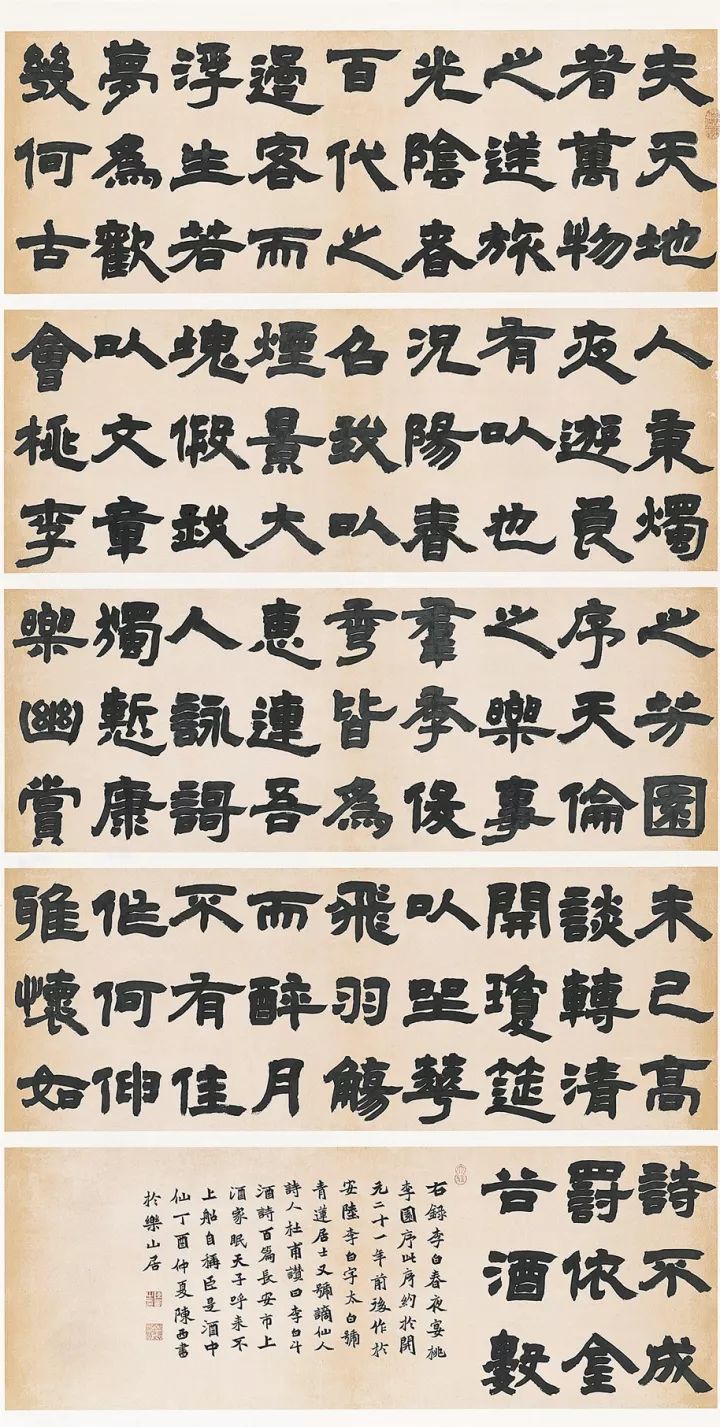 夫天地
者萬物
之逆旅
光陰者
百代之
過客而
浮生若
夢為歡
幾何古
人秉燭
夜遊良
有以也
況陽春
召我以
煙景大
塊假我
以文章
會桃李
之芳園
序天倫
之樂事
羣季俊
秀皆為
惠連吾
人詠謌
獨慙康
樂幽賞
未已高
談轉清
開瓊筵
以坐華
飛羽觴
而醉月
不有佳
作何伸
雅懷如
詩不成
罰依金
谷酒數
右錄李白春夜宴桃
李園序此序約於開
元二十一年前後作於
安陸李白字太白號
青蓮居士又號謫仙人
詩人杜甫讚曰李白斗
酒詩百篇長安市上
酒家眠天子呼來不
上船自稱臣是酒中
仙丁酉仲夏陳西書
於樂山居